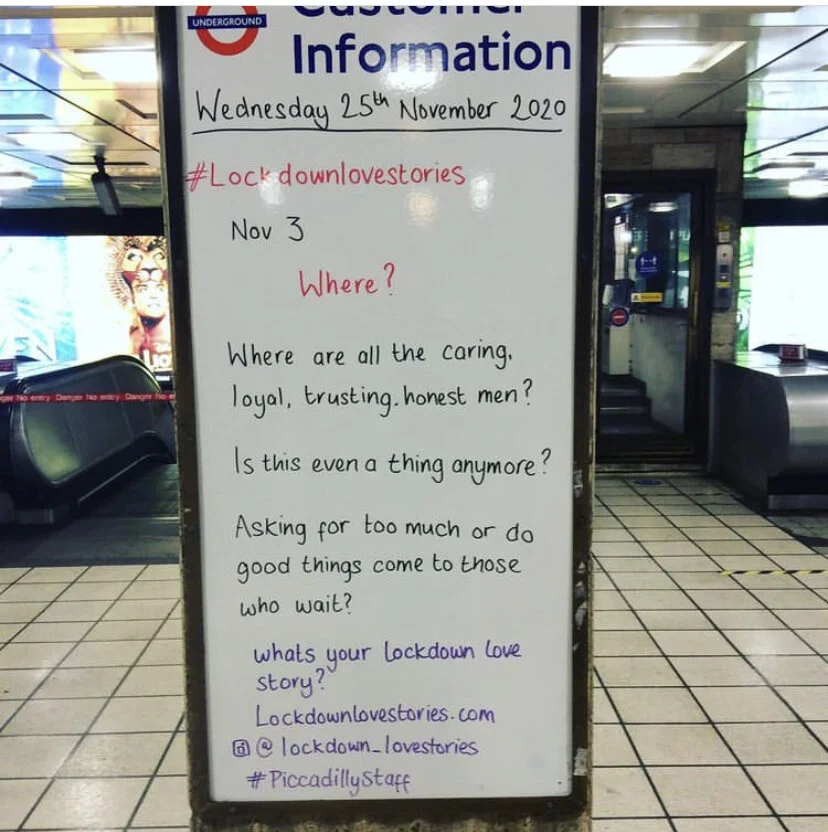 UNDERGROUND
Customer
Information
Wednesday 25th November 2020
#Lockdownlovestories
Nov 3
Where?
Where are all the caring,
loyal, trusting, honest men?
Is this even a thing anymore?
Asking for too much or do
good things come to those
who wait?
whats your Lockdown love
story?
Lockdownlovestories.com
@ lockdown_lovestories
#PiccadillyStaff
No entry Danger No entry Danger No e